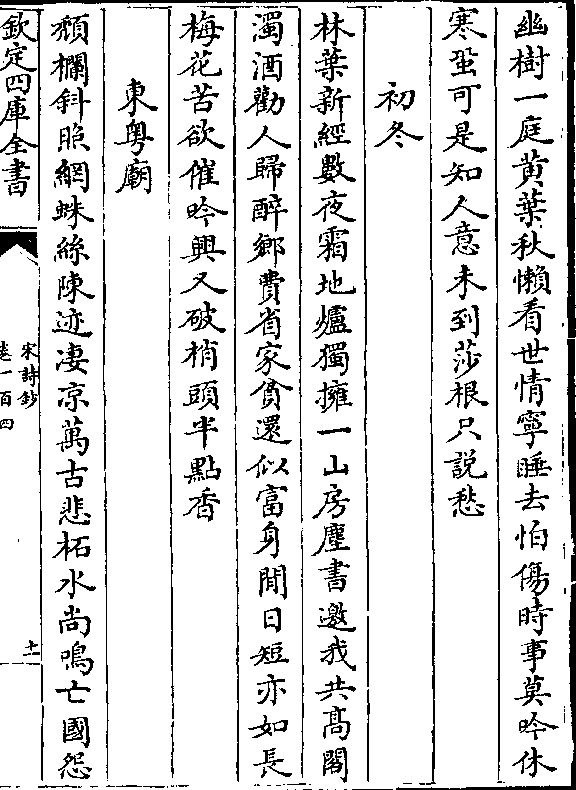 幽樹一庭黄葉秋懶看世情寧睡去怕傷時事莫吟休
寒蛩可是知人意未到莎根只説愁
初冬
林葉新經數夜霜地爐獨擁一山房塵書邀我共髙閣
濁酒勸人歸醉鄉費省家貧還似富身閒日短亦如長
梅花苦欲催吟興又破梢頭半點香
東粤廟
頽欄斜照網蛛絲陳迹凄凉萬古悲柘水尚鳴亡國怨
欽定四庫全書
宋詩鈔
卷一百四
十一